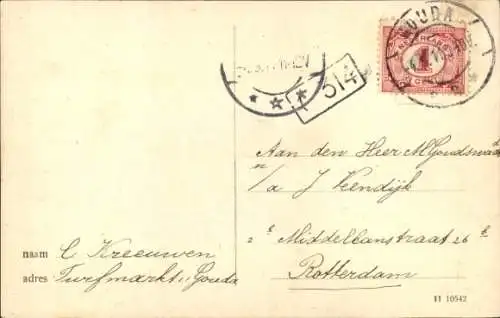 GOUDA
NEDERLAND
1
CENT
314
Aan den Heer M Goudswaard
p/a J Veendijk
2e Middellanstraat 26 e
Rotterdam
naam C Kreeuwen
adres Turfmarkt, Gouda
11 10542